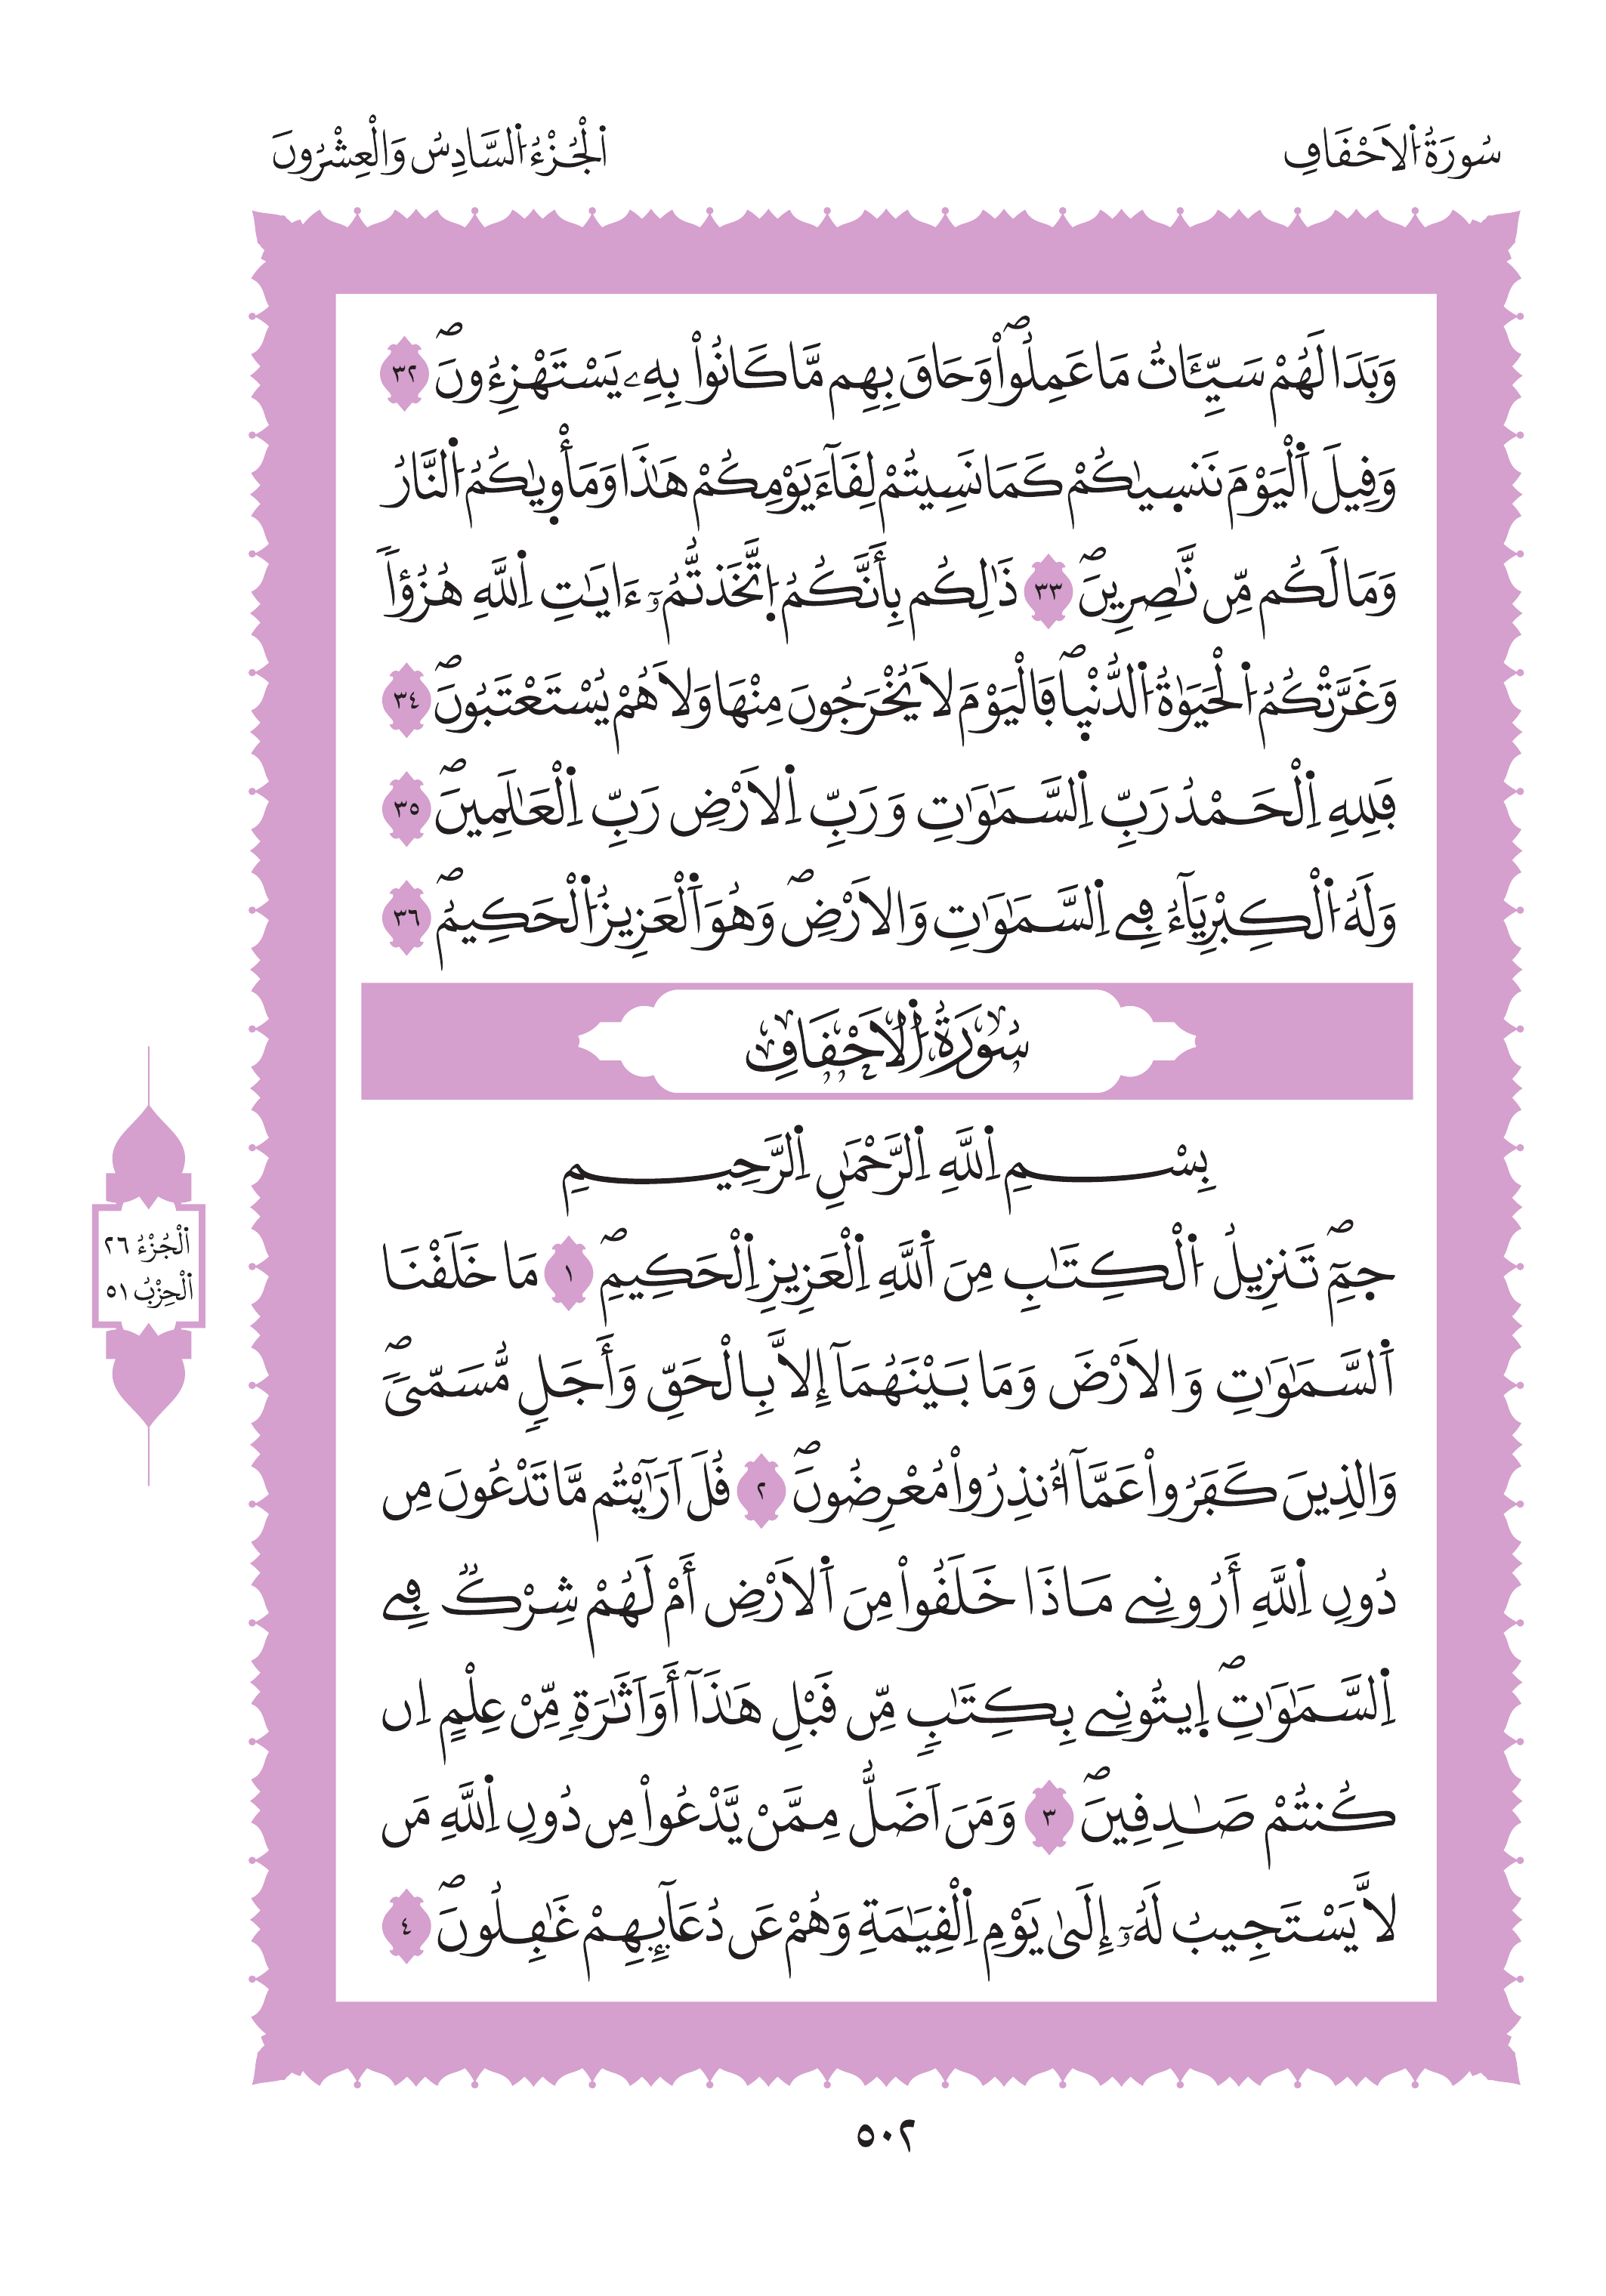 سُورَةُ اُ۬لَاحْقَافِ
اَ۬لْجُزْءُ اُ۬لسَّادِسُ وَالْعِشْرُونَ
وَبَدَا لَهُمْ سَيِّـَٔاتُ مَا عَمِلُواْۖ وَحَاقَ بِهِم مَّا كَانُواْ بِهِۦ يَسْتَهْزِءُونَۖ ٣٢
وَقِيلَ اَ۬لْيَوْمَ نَنس۪يٰكُمْ كَمَا نَسِيتُمْ لِقَآءَ يَوْمِكُمْ هَٰذَا وَمَأْو۪يٰكُمُ اُ۬لنَّارُ
وَمَا لَكُم مِّن نَّٰصِرِينَۖ ٣٣ ذَٰلِكُم بِأَنَّكُمُ اُ۪تَّخَذتُّمُۥٓ ءَايَٰتِ اِ۬للَّهِ هُزُؤاٗ
وَغَرَّتْكُمُ اُ۬لْحَيَوٰةُ اُ۬لدُّنْي۪اۖ فَالْيَوْمَ لَا يُخْرَجُونَ مِنْهَا وَلَا هُمْ يُسْتَعْتَبُونَۖ ٣٤
فَلِلهِ اِ۬لْحَمْدُ رَبِّ اِ۬لسَّمَٰوَٰتِ وَرَبِّ اِ۬لَارْضِ رَبِّ اِ۬لْعَٰلَمِينَۖ ٣٥
وَلَهُ اُ۬لْكِبْرِيَآءُ فِے اِ۬لسَّمَٰوَٰتِ وَالَارْضِۖ وَهُوَ اَ۬لْعَزِيزُ اُ۬لْحَكِيمُۖ ٣٦
سُورَةُ اُ۬لَاحْقَافِ
بِسْمِ اِ۬للَّهِ اِ۬لرَّحْمَٰنِ اِ۬لرَّحِيمِ
ح۪مِٓۖ تَنزِيلُ اُ۬لْكِتَٰبِ مِنَ اَ۬للَّهِ اِ۬لْعَزِيزِ اِ۬لْحَكِيمِۖ ١ مَا خَلَقْنَا
اَ۬لسَّمَٰوَٰتِ وَالَارْضَ وَمَا بَيْنَهُمَآ إِلَّا بِالْحَقِّ وَأَجَلٖ مُّسَمّيٗۖ
وَالذِينَ كَفَرُواْ عَمَّآ أُنذِرُواْ مُعْرِضُونَۖ ٢ قُلَ اَرَٰٓيْتُم مَّا تَدْعُونَ مِن
دُونِ اِ۬للَّهِ أَرُونِے مَاذَا خَلَقُواْ مِنَ اَ۬لَارْضِ أَمْ لَهُمْ شِرْكٞ فِے
اِ۬لسَّمَٰوَٰتِۖ اِ۪يتُونِے بِكِتَٰبٖ مِّن قَبْلِ هَٰذَآ أَوَ اَثَٰرَةٖ مِّنْ عِلْمٍ اِن
كُنتُمْ صَٰدِقِينَۖ ٣ وَمَنَ اَضَلُّ مِمَّنْ يَّدْعُواْ مِن دُونِ اِ۬للَّهِ مَن
لَّا يَسْتَجِيبُ لَهُۥٓ إِلَىٰ يَوْمِ اِ۬لْقِيَٰمَةِ وَهُمْ عَن دُعَآئِهِمْ غَٰفِلُونَۖ ٤
اَ۬لْجُزْءُ ٢٦
اَ۬لْحِزْبُ ٥١
٥٠٢